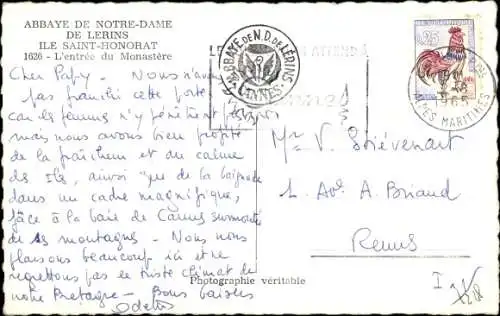 ABBAYE DE NOTRE-DAME
DE LERINS
ILE SAINT-HONORAT
1626 - L'entrée du Monastère
Cher Papy - Nous n'avons
pas franchi cette porte
car les femmes n'y pénètrent
mais nous avons bien profité
de la fraîcheur et du calme
de Ile, ainsi que de la baignade
dans un cadre magnifique,
face à la baie de Cannes surmontée
de ses montagnes - Nous nous
plaisons beaucoup ici et ne
regrettons pas le triste climat de
notre Bretagne - Bons baisers
Odette
Photographie véritable
ABBAYE DE N.D. DE LÉRINS
CANNES
25
1965
ALPES MARITIMES
Mr V. Stiévenart
1. Av. A. Briand
Reims
I